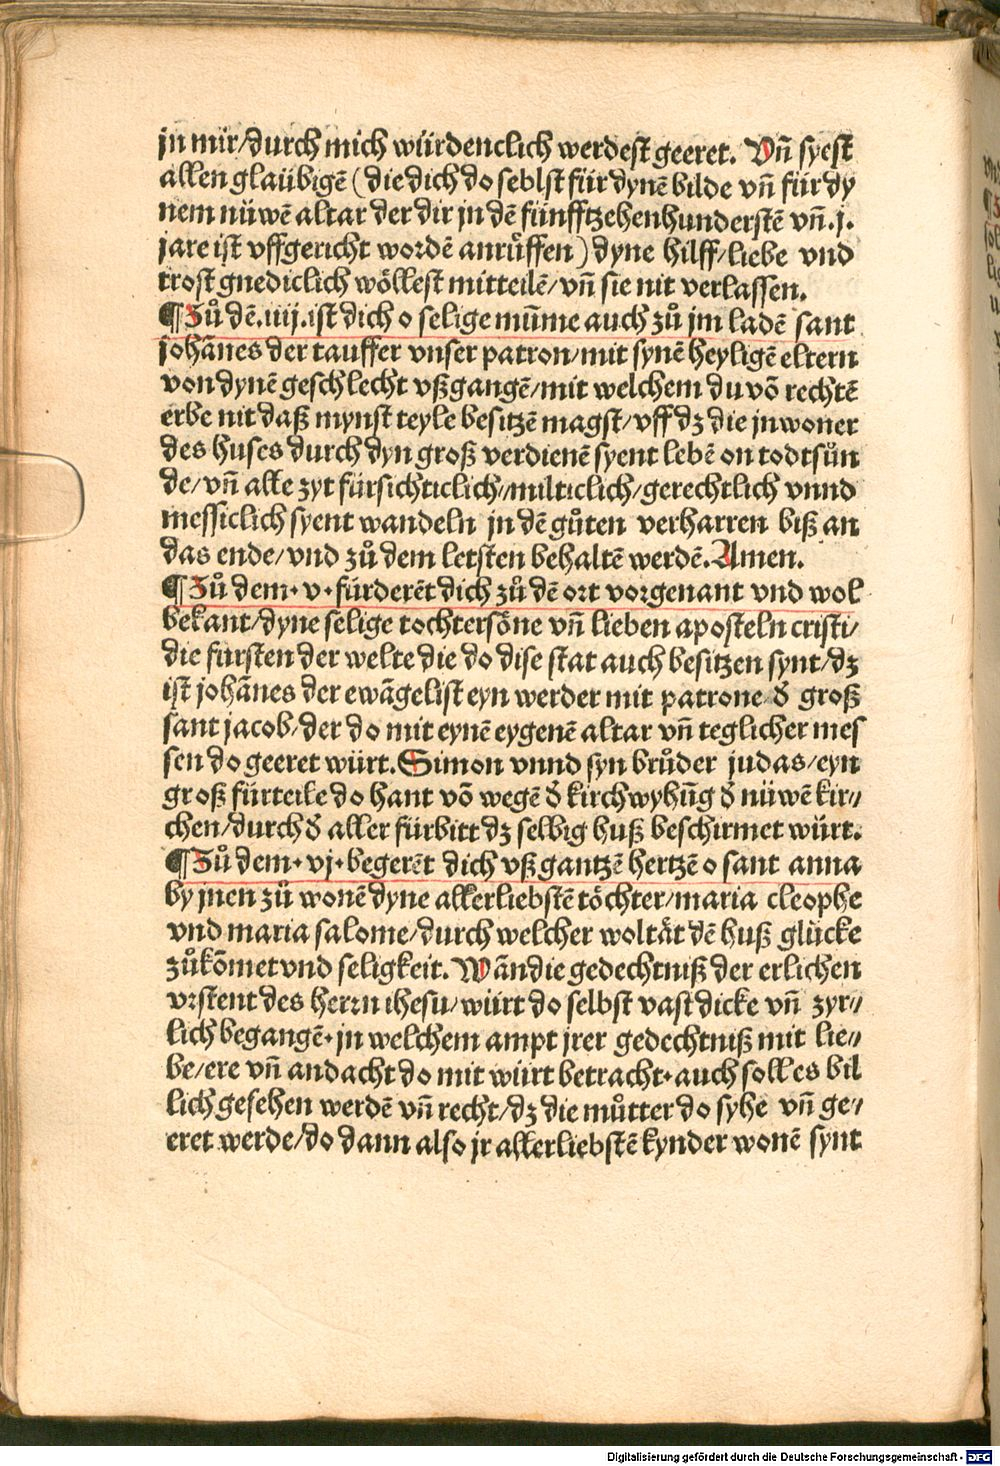 jn mir/durch mich würdenclich werdest geeret. Vn̄ syest
allen glaübigē (die dich do seblst für dynē bilde vn̄ für dy
nem nüwē altar der dir jn dē fünfftzehenhunderstē vn̄.j.
jare ist vffgericht wordē anrůffen) dyne hilff/liebe vnd
trost gnediclich wöllest mitteilē/vn̄ sie nit verlassen.
¶Zů dē.iiij.ist dich o selige mūme auch zů jm ladē sant
johānes der tauffer vnser patron/mit synē heyligē eltern
von dynē geschlecht vßgangē/mit welchem du vō rechtē
erbe nit daß mynst teyle besitzē magst/vff dz die jnwoner
des huses durch dyn groß verdienē syent lebē on todtsůn
de/vn̄ alle zyt fürsichticlich/milticlich/gerechtlich vnnd
messiclich syent wandeln jn dē gůten verharren biß an
das ende/vnd zů dem letsten behaltē werdē.Amen.
¶Zů dem·v·fürderēt dich zů dē ort vorgenant vnd wol
bekant/dyne selige tochtersöne vn̄ lieben aposteln cristi/
die fursten der welte die do dise stat auch besitzen synt/dz
ist johānes der ewāgelist eyn werder mit patrone d̄ groß
sant jacob/der do mit eynē eygenē altar vn̄ teglicher mes
sen do geeret würt.Simon vnnd syn brůder judas/eyn
groß fürteile do hant vō wegē d̄ kirchwyhūg d̄ nüwē kir//
chen/durch d̄ aller fürbitt dz selbig huß beschirmet würt.
¶Zů dem·vj·begerēt dich vß gantzē hertzē o sant anna
by jnen zů wonē dyne allerliebstē töchter/maria cleophe
vnd maria salome/durch welcher woltät dē huß glücke
zůkōmet vnd seligkeit. Wān die gedechtniß der erlichen
vrstent des herrn ihesu/würt do selbst vast dicke vn̄ zyr//
lich begangē·jn welchem ampt jrer gedechtniß mit lie//
be/ere vn̄ andacht do mit würt betracht·auch soll es bil
lich gesehen werdē vn̄ recht/dz die můtter do syhe vn̄ ge//
eret werde/do dann also jr allerliebstē kynder wonē synt
Digitalisierung gefördert durch die Deutsche Forschungsgemeinschaft - DFG